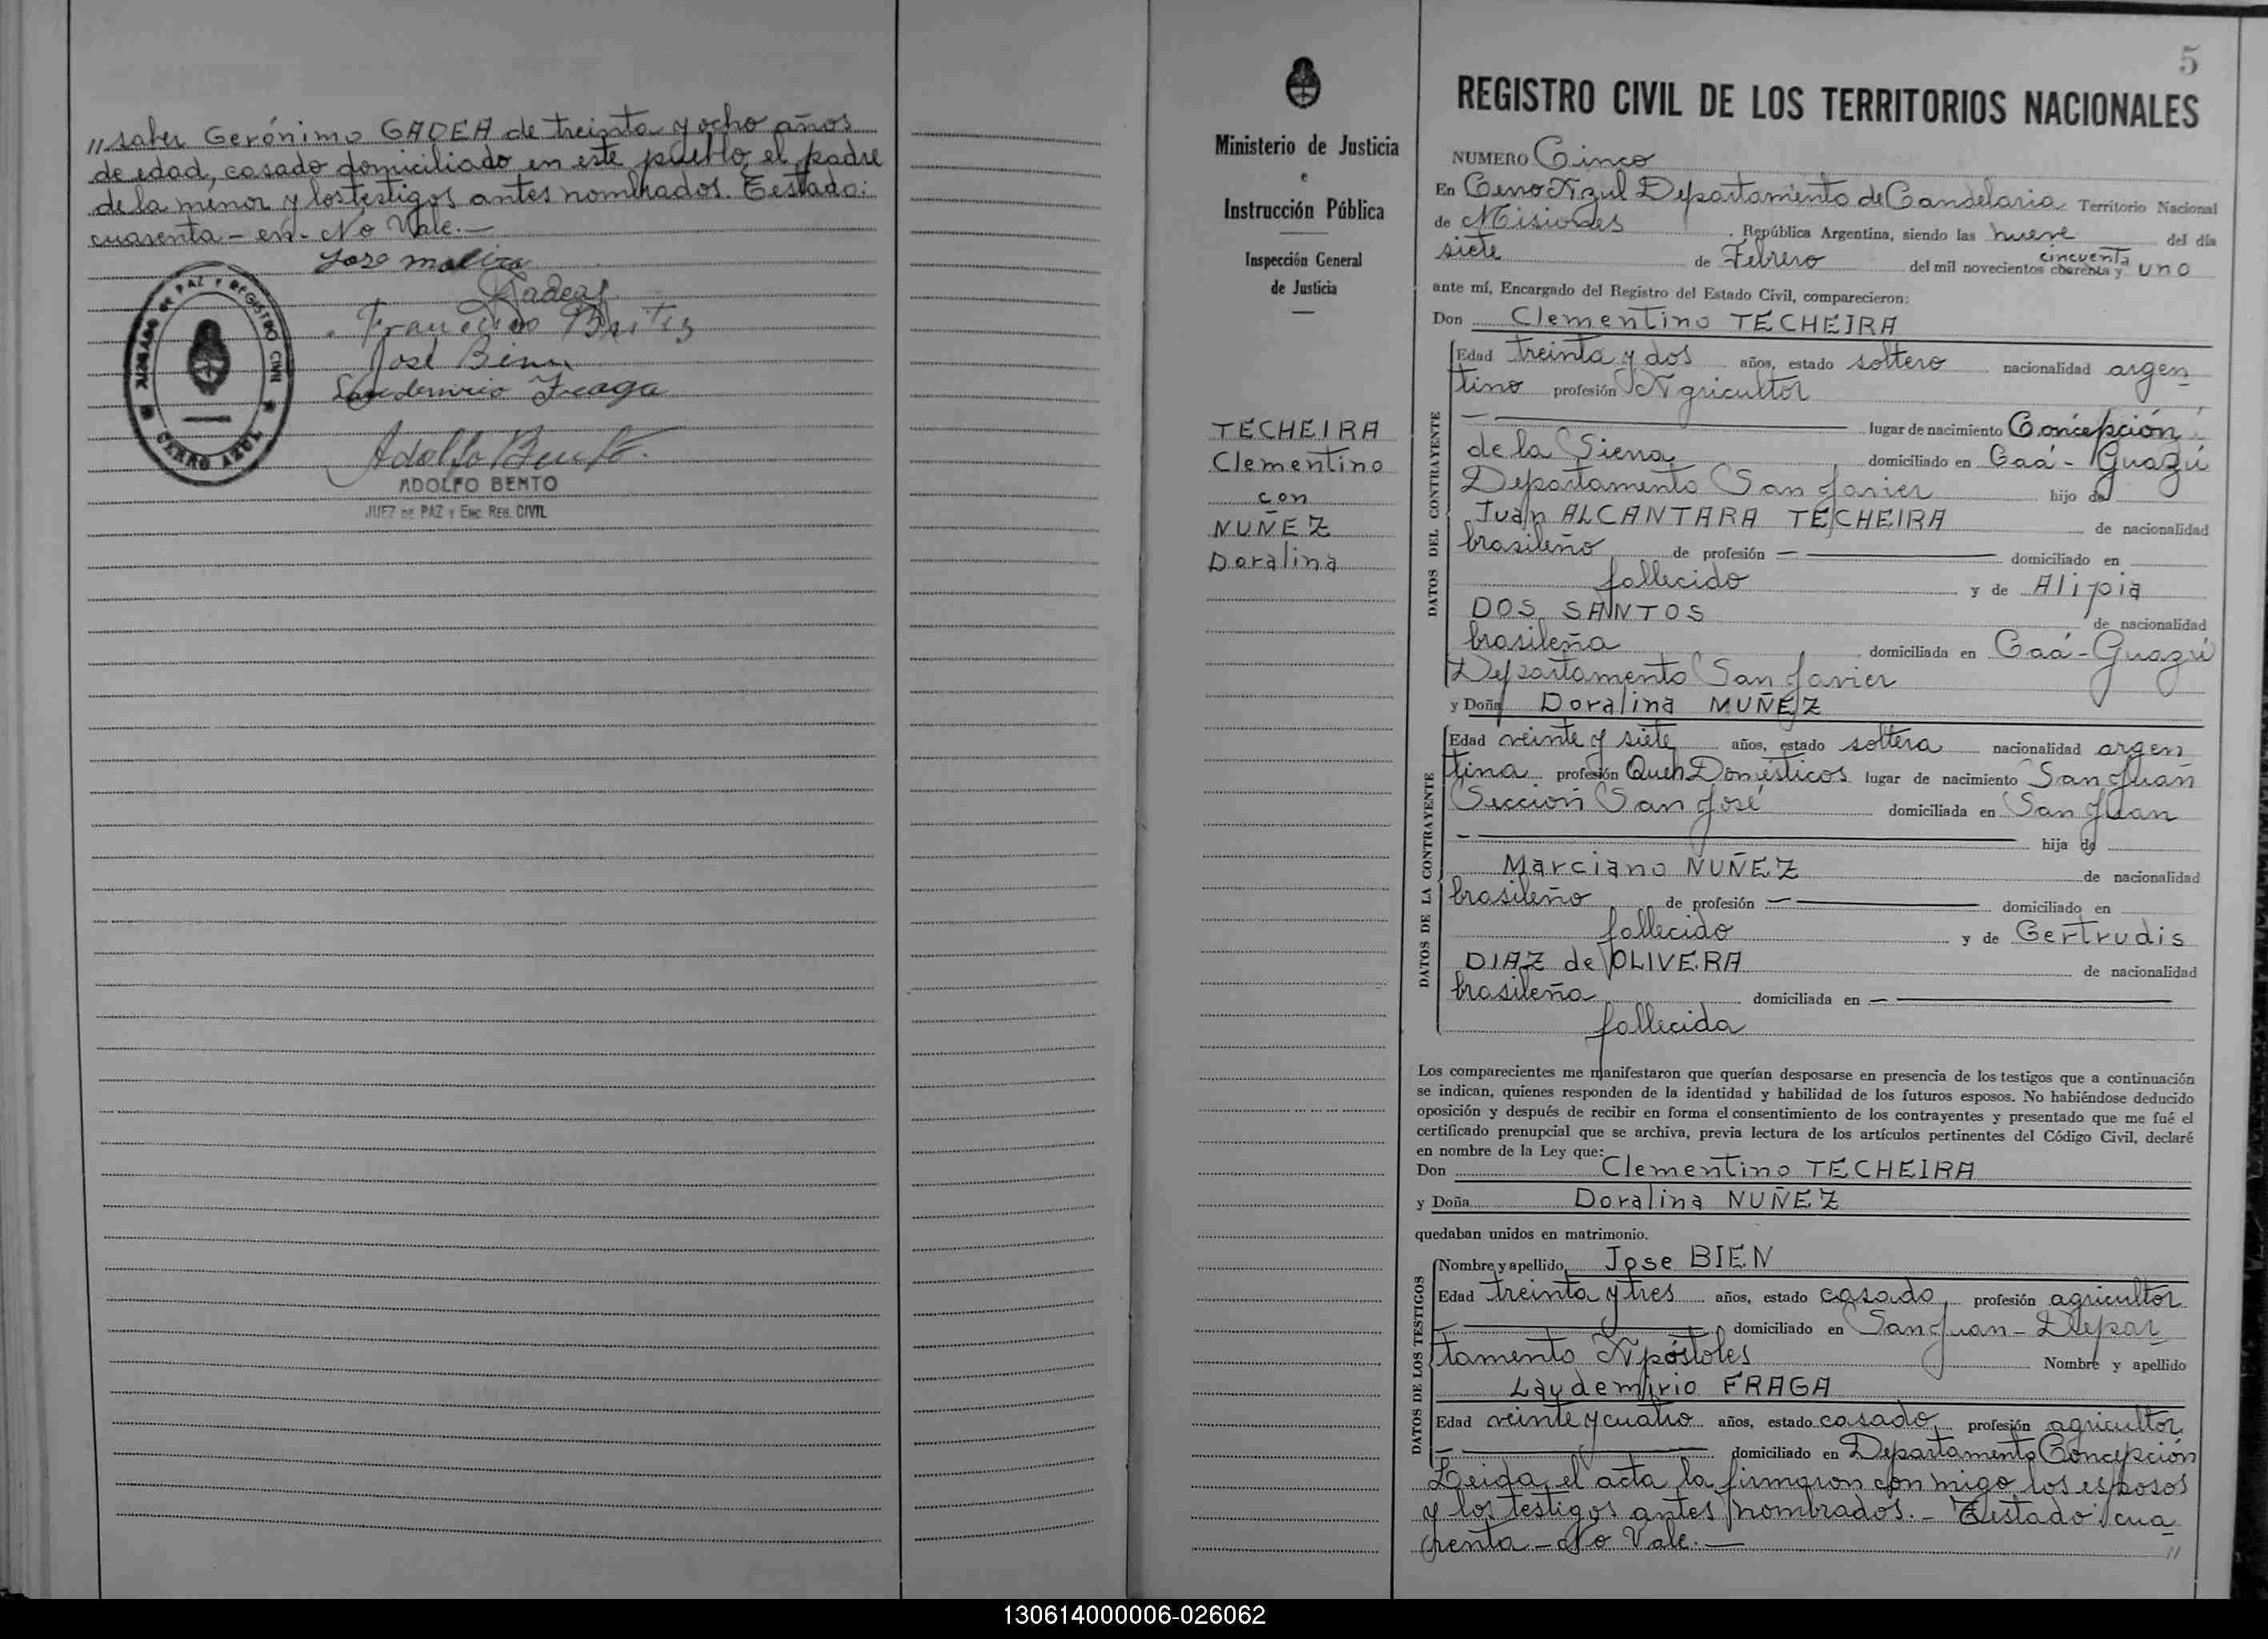 "saber Gerónimo GADEA de treinta y ocho años
de edad, casado domiciliado en este pueblo, el padre
de la menor y los testigos antes nombrados. Testado:
cuarenta - en - No Vale. —
Jose molina
Gadea
Francisco Britez
José Bien
Laudemirio Fraga
DE PAZ Y REGISTRO CIVIL
CERRO AZUL
Adolfo Bento
ADOLFO BENTO
JUEZ DE PAZ y Enc. REG. CIVIL
Ministerio de Justicia
e
Instrucción Pública
Inspección General
de Justicia
TECHEIRA
Clementino
con
NUÑEZ
Doralina
5
REGISTRO CIVIL DE LOS TERRITORIOS NACIONALES
NUMERO Cinco
En Cerro Azul Departamento de Candelaria Territorio Nacional
de Misiones, República Argentina, siendo las nueve del día
siete de Febrero del mil novecientos cuarenta y cincuenta uno
ante mí, Encargado del Registro del Estado Civil, comparecieron:
Don Clementino TECHEIRA
DATOS DEL CONTRAYENTE
Edad treinta y dos años, estado soltero nacionalidad argen
tino profesión Agricultor
— lugar de nacimiento Concepción
de la Sierra domiciliado en Caá-Guazú
Departamento San Javier hijo de
Juan ALCANTARA TECHEIRA de nacionalidad
brasileño de profesión — domiciliado en
fallecido y de Alipia
DOS SANTOS de nacionalidad
brasileña domiciliada en Caá-Guazú
Departamento San Javier
y Doña Doralina NUÑEZ
DATOS DE LA CONTRAYENTE
Edad veinte y siete años, estado soltera nacionalidad argen
tina profesión Queh Domésticos lugar de nacimiento San Juan
Sección San José domiciliada en San Juan
— hija de
Marciano NUÑEZ de nacionalidad
brasileño de profesión — domiciliado en
fallecido y de Gertrudis
DIAZ de OLIVERA de nacionalidad
brasileña domiciliada en —
fallecida
Los comparecientes me manifestaron que querían desposarse en presencia de los testigos que a continuación
se indican, quienes responden de la identidad y habilidad de los futuros esposos. No habiéndose deducido
oposición y después de recibir en forma el consentimiento de los contrayentes y presentado que me fué el
certificado prenupcial que se archiva, previa lectura de los artículos pertinentes del Código Civil, declaré
en nombre de la Ley que:
Don Clementino TECHEIRA
y Doña Doralina NUÑEZ
quedaban unidos en matrimonio.
DATOS DE LOS TESTIGOS
Nombre y apellido Jose BIEN
Edad treinta y tres años, estado casado, profesión agricultor
— domiciliado en San Juan - Depar
tamento Apóstoles Nombre y apellido
Laudemirio FRAGA
Edad veinte y cuatro años, estado casado, profesión agricultor
— domiciliado en Departamento Concepción
Leida el acta la firmaron con migo los esposos
y los testigos antes nombrados. - Testado: cua
renta - No Vale. — "
130614000006-026062